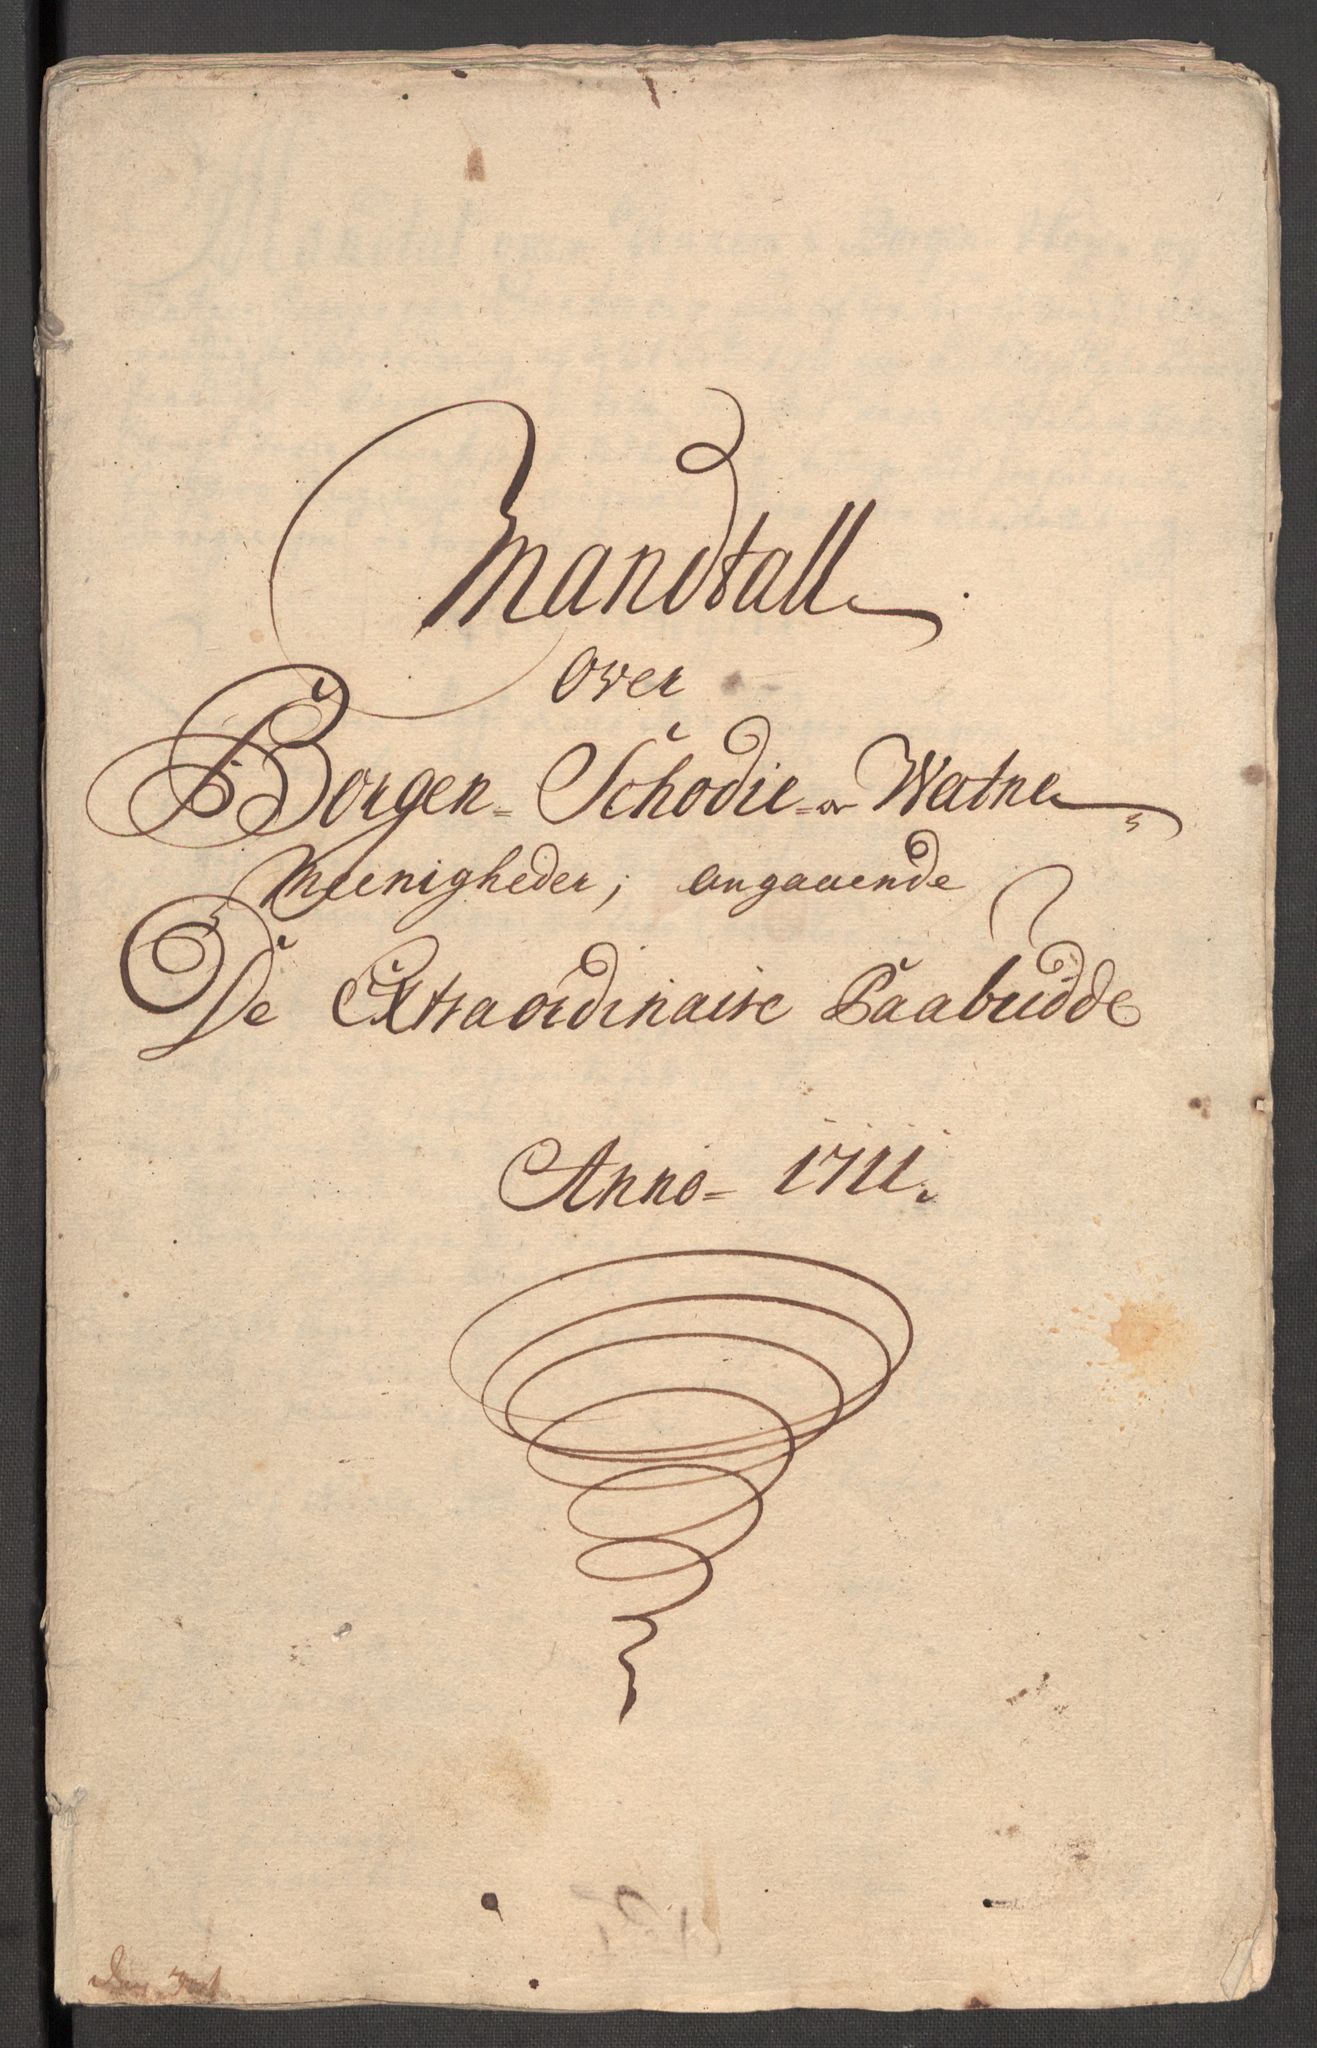 Mandtall
Over
Borgen- Schodie- o Watne
Meenigheder, angaaende
De Extraordinaire Paabudde
Anno- 1711.